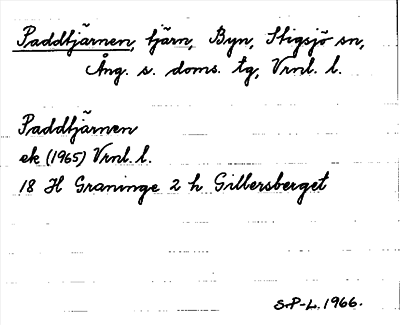 Paddtjärnen, tjärn, Byn, Stigsjö sn,
Ång. s. doms. tg, Vrnl. l.
Paddtjärnen
ek (1965) Vrnl. l.
18 H Graninge 2 h Gillersberget
S.P-L. 1966.